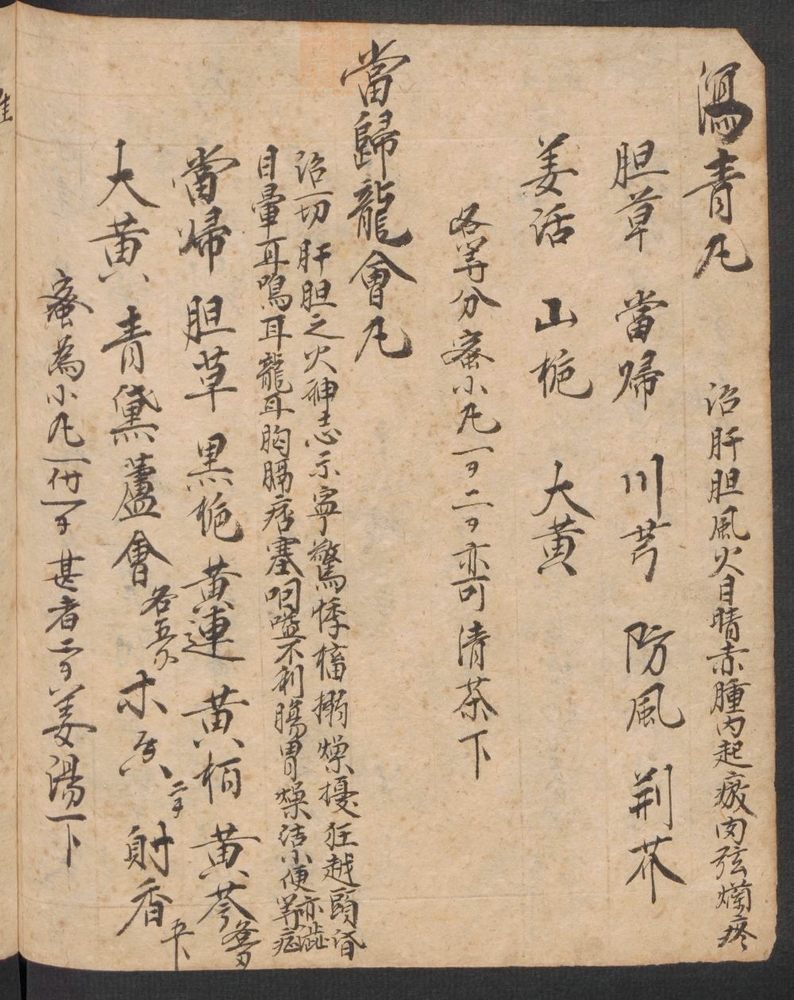 瀉青丸
治肝胆風火目睛赤腫内起瘢肉弦爛疼
胆草 當㷌 川芎 防風 荆芥
姜活 山栀 大黄
各等分蜜小丸一二亦可清茶下
當歸龍會丸
治一切肝胆之火神志不寧驚悸搐搦燥擾狂越頭昏
目暈耳鳴耳龍耳胸膈痞塞咽嗌不利腸胃燥結小便赤澁等症
當歸 胆草 黒栀 黄連 黄栢 黄芩
大黄 青黛 蘆會 各五 木香 二 射香 五
蜜為小丸一付一甚者二姜湯下